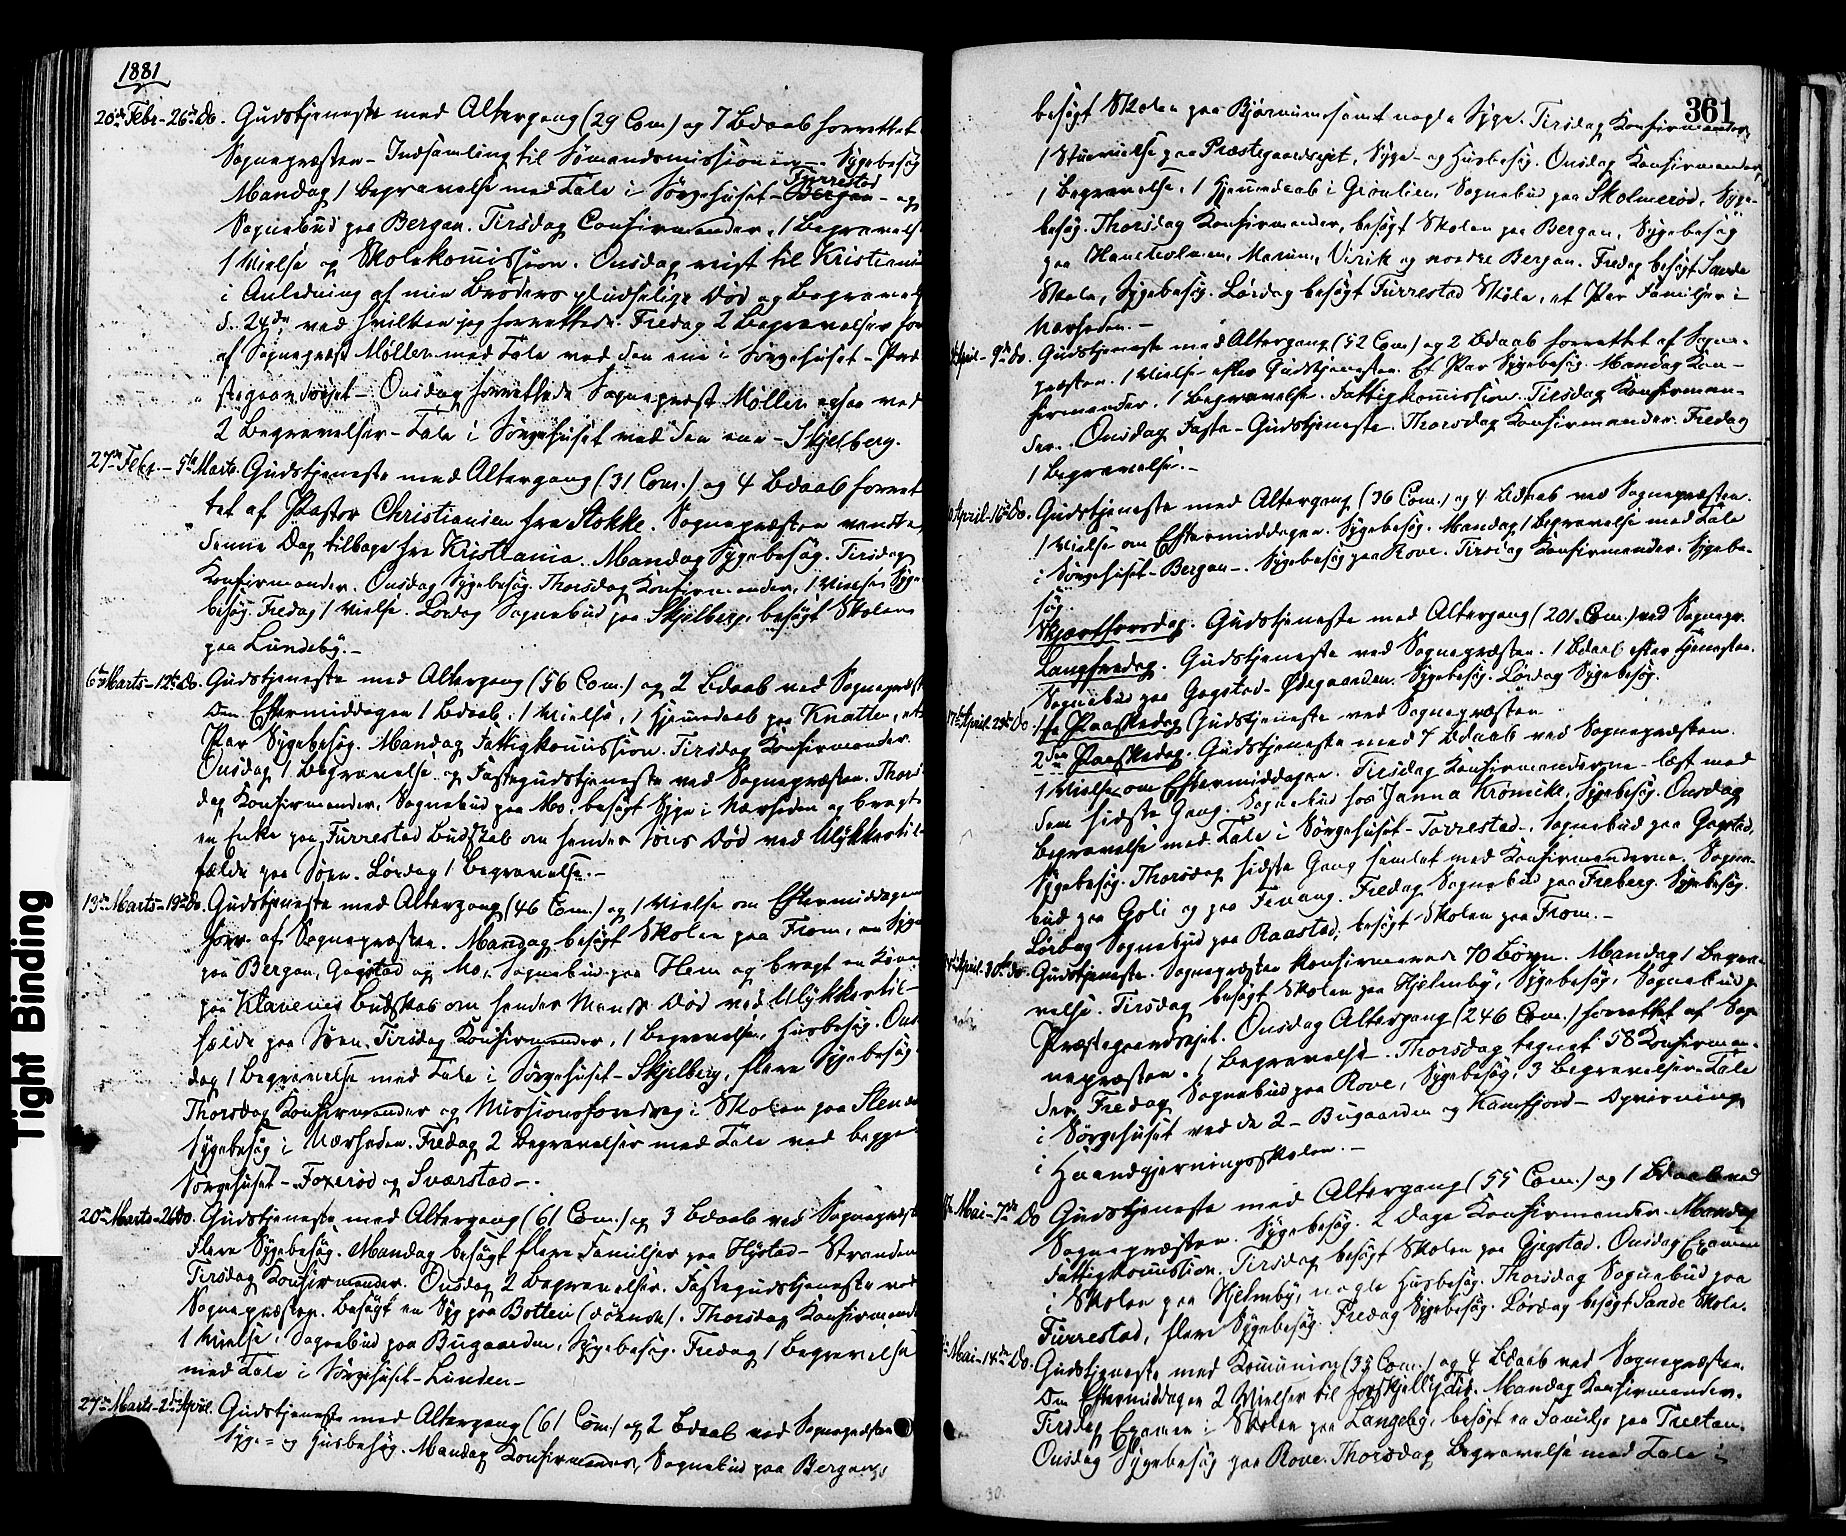 1881
20de Febr - 26de Do. Gudstjeneste med Altergang (29 Com.) og 7 Bdaab forrettet
Sognepræsten - Indsamling til Sømandsmissionen -. Sygebesøg
Mandag 1 Begravelse med Tale i Sørgehuset - Furrestad - og
Sognebud paa Bergan. Tirsdag Confirmander, 1 Begravelse
1 Vielse og Skolekommission. Onsdag reist til Kristiania
i Anledning af min Broders pludselige Død og Begravelse
d. 24de, ved hvilken jeg forrettede. Fredag 2 Begravelser for
af Sognepræst Møller med Tale ved den ene i Sørgehuset - Præ
stegaardsejet - Onsdag forrettede Sognepræst Møller ogsaa ved
2 Begravelser - Tale i Sørgehuset ved den ene - Skjelberg.
27de Febr. - 5te Marts. Gudstjeneste med Altergang (31 Com.) og 4 Bdaab forret
tet af Pastor Christiansen fra Stokke. Sognepræsten vendte
denne Dag tilbage fra Kristiania. Mandag Sygebesøg. Tirsdag
Konfirmander. Onsdag Sygebesøg. Thorsdag Konfirmander, 1 Vielse, Syge
besøg. Fredag 1 Vielse. Lørdag Sognebud paa Skjelberg, besøgt Skolen
paa Lundeby. -
6te Marts - 12te Do. Gudstjeneste med Altergang (56 Com.) og 2 Bdaab ved Sognepræst
Om Eftermiddagen 1 Bdaab, 1 Vielse, 1 Hjemmedaab paa Knatten, et
Par Sygebesøg. Mandag Fattigkommission. Tirsdag Konfirmander.
Onsdag 1 Begravelse og Fastegudstjeneste ved Sognepræsten. Thors
dag Konfirmander, Sognebud paa Mo, besøgt Syge i Nærheden og bragt
en Enke paa Furrestad Budskab om hendes Søns Død ved Ulykkestil-
fælde paa Søen. Lørdag 1 Begravelse. -
13de Marts - 19de Do. Gudstjeneste med Altergang (46 Com.) og 1 Vielse om Eftermiddagen
forr. af Sognepræsten. Mandag besøgt Skolen paa From, en Syg
paa Bergan, Gogstad og Mo, Sognebud paa Hem og bragt en Kone
paa Klavenes Budskab om hendes Mands Død ved Ulykkestil-
fælde paa Søen. Tirsdag Konfirmander, 1 Begravelse, Husbesøg. Ons
dag 1 Begravelse med Tale i Sørgehuset - Skjelberg, flere Sygebesøg
Thorsdag Konfirmander og Missionsforedrag i Skolen paa
Sygebesøg i Nærheden. Fredag 2 Begravelser med Tale ved begge
Sørgehuset - Foxerød og Sværstad -.
20de Marts - 26 Do. Gudstjeneste med Altergang (61 Com.) og 3 Bdaab ved Sognepræst
Flere Sygebesøg. Mandag besøgt flere Familjer paa Hystad - Stranden
Tirsdag Konfirmander. Onsdag 2 Begravelser. Fastegudstjeneste ved
Sognepræsten. Besøgt en Syg paa Botten. Thorsdag Konfirmande
1 Vielse, Sognebud paa Bugaarden, Sygebesøg. Fredag 1 Begravelse
med Tale i Sørgehuset - Lunden -
27de Marts - 2den April. Gudstjeneste med Altergang (61 Com.) og 2 Bdaab ved Sognepræsten
Syge- og Husbesøg. Mandag Konfirmander, Sognebud paa Bergan,
361
besøgt Skolen paa Bjørnum samt nogle Syge. Tirsdag Konfirmander,
1 Stuevielse paa Præstegaardsejet, Syge- og Husbesøg. Onsdag Konfirmander,
1 Begravelse, 1 Hjemmedaab i Grønlien, Sognebud paa Skolmerød, Syge-
besøg. Thorsdag Konfirmander, besøgt Skolen paa Bergan, Sygebesøg
paa Haneholmen, Marum, Virik og nordre Bergan. Fredag besøgt Sande
Skole, Sygebesøg. Lørdag besøgt Furrestad Skole, et Par Familjer i
Nærheden. -
April - 9de Do. Gudstjeneste med Altergang (52 Com.) og 2 Bdaab forrettet af Sogne-
præsten. 1 Vielse efter Gudstjenesten. Et Par Sygebesøg. Mandag Kon-
firmander, 1 Begravelse, Fattigkommission. Tirsdag Konfirman-
der. Onsdag Faste-Gudstjeneste. Thorsdag Konfirmander. Fredag
1 Begravelse. -
April - 16de Do. Gudstjeneste med Altergang (36 Com.) og 4 Bdaab ved Sognepræsten.
1 Vielse om Eftermiddagen. Sygebesøg. Mandag 1 Begravelse med Tale
i Sørgehuset - Bergan -. Sygebesøg paa Rove. Tirsdag Konfirmander. Sygebe-
søg.
Skjærthorsdag. Gudstjeneste med Altergang (201 Com.) ved Sognepr.
Langfredag. Gudstjeneste ved Sognepræsten. 1 Bdaab efter Tjenesten.
Sognebud paa Gogstad - Ødegaarden. Sygebesøg. Lørdag Sygebesøg.
17de April - 23de Do. 1ste Paaskedag Gudstjeneste ved Sognepræsten
2den Paaskedag. Gudstjeneste med 7 Bdaab ved Sognepræsten.
1 Vielse om Eftermiddagen. Tirsdag Konfirmanderne - læst med
dem sidste Gang. Sognebud hos Janna Krömcke, Sygebesøg. Onsdag
Begravelse med Tale i Sørgehuset - Torrestad -. Sognebud paa Gogstad,
Sygebesøg. Thorsdag sidste Gang samlet med Konfirmanderne. Sogne-
bud paa Goli og paa Fevang. Fredag Sognebud paa Freberg. Sygebesøg.
Lørdag Sognebud paa Raastad, besøgt Skolen paa From. -
April - 30te Do. Gudstjeneste. Sognepræsten konfirmerede 70 Børn. Mandag 1 Begra-
velse. Tirsdag besøgt Skolen paa Hjelmby, Sygebesøg, Sognebud p.
Præstegaardsejet. Onsdag Altergang (246 Com.) forrettet af Sog-
nepræsten. 1 Begravelse. Thorsdag tegnet 58 Konfirman-
der. Fredag Sognebud paa Rove, Sygebesøg, 3 Begravelser - Tale
i Sørgehuset ved de 2 - Bugaarden og Kamfjord - Opvisning
i Haandgjerningsskolen. -
Mai - 7de Do Gudstjeneste med Altergang (55 Com.) og 1 Bdaab ved
Sognepræsten. Sygebesøg. 2 Dage Konfirmander. Mandag
Fattigkommission. Tirsdag besøgt Skolen paa Gjegstad. Onsdag Examen
i Skolen paa Hjelmby, nogle Husbesøg. Thorsdag Sognebud paa
Furrestad, flere Sygebesøg. Fredag Sygebesøg. Lørdag besøgt Sande Skole.
Mai - 14de Do. Gudstjeneste med Kommunion (33 Com.) og 4 Bdaab ved Sognepræsten.
Om Eftermiddagen 2 Vielser til forskjellig Tid. Mandag Konfirmander.
Tirsdag Examen i Skolen paa Langeby, besøgt en Familje paa
Onsdag Sygebesøg paa Rove. Thorsdag Begravelse med Tale i
30.
Tight Binding